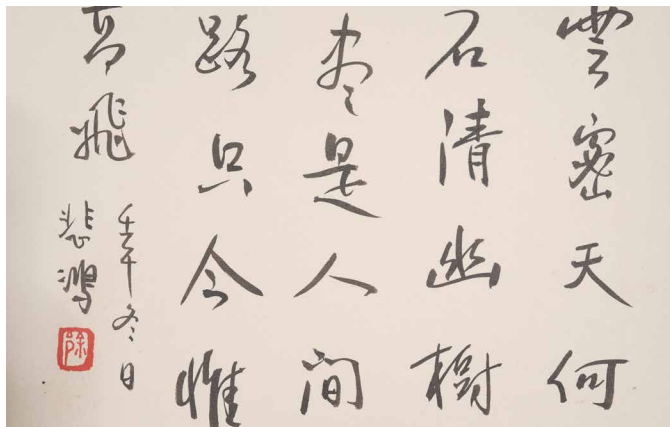 雲密天何
石清幽樹
盡是人間
路只今惟
飛
壬午冬日
悲鴻
徐